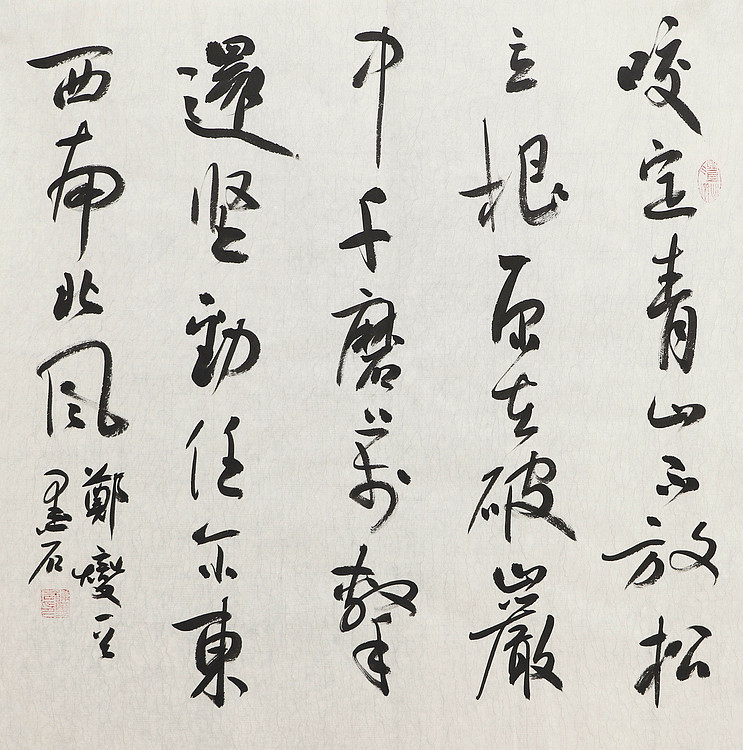 咬定青山不放松
立根原在破巖
中千磨萬擊
還坚勁任尔東
西南北风
鄭燮
墨石